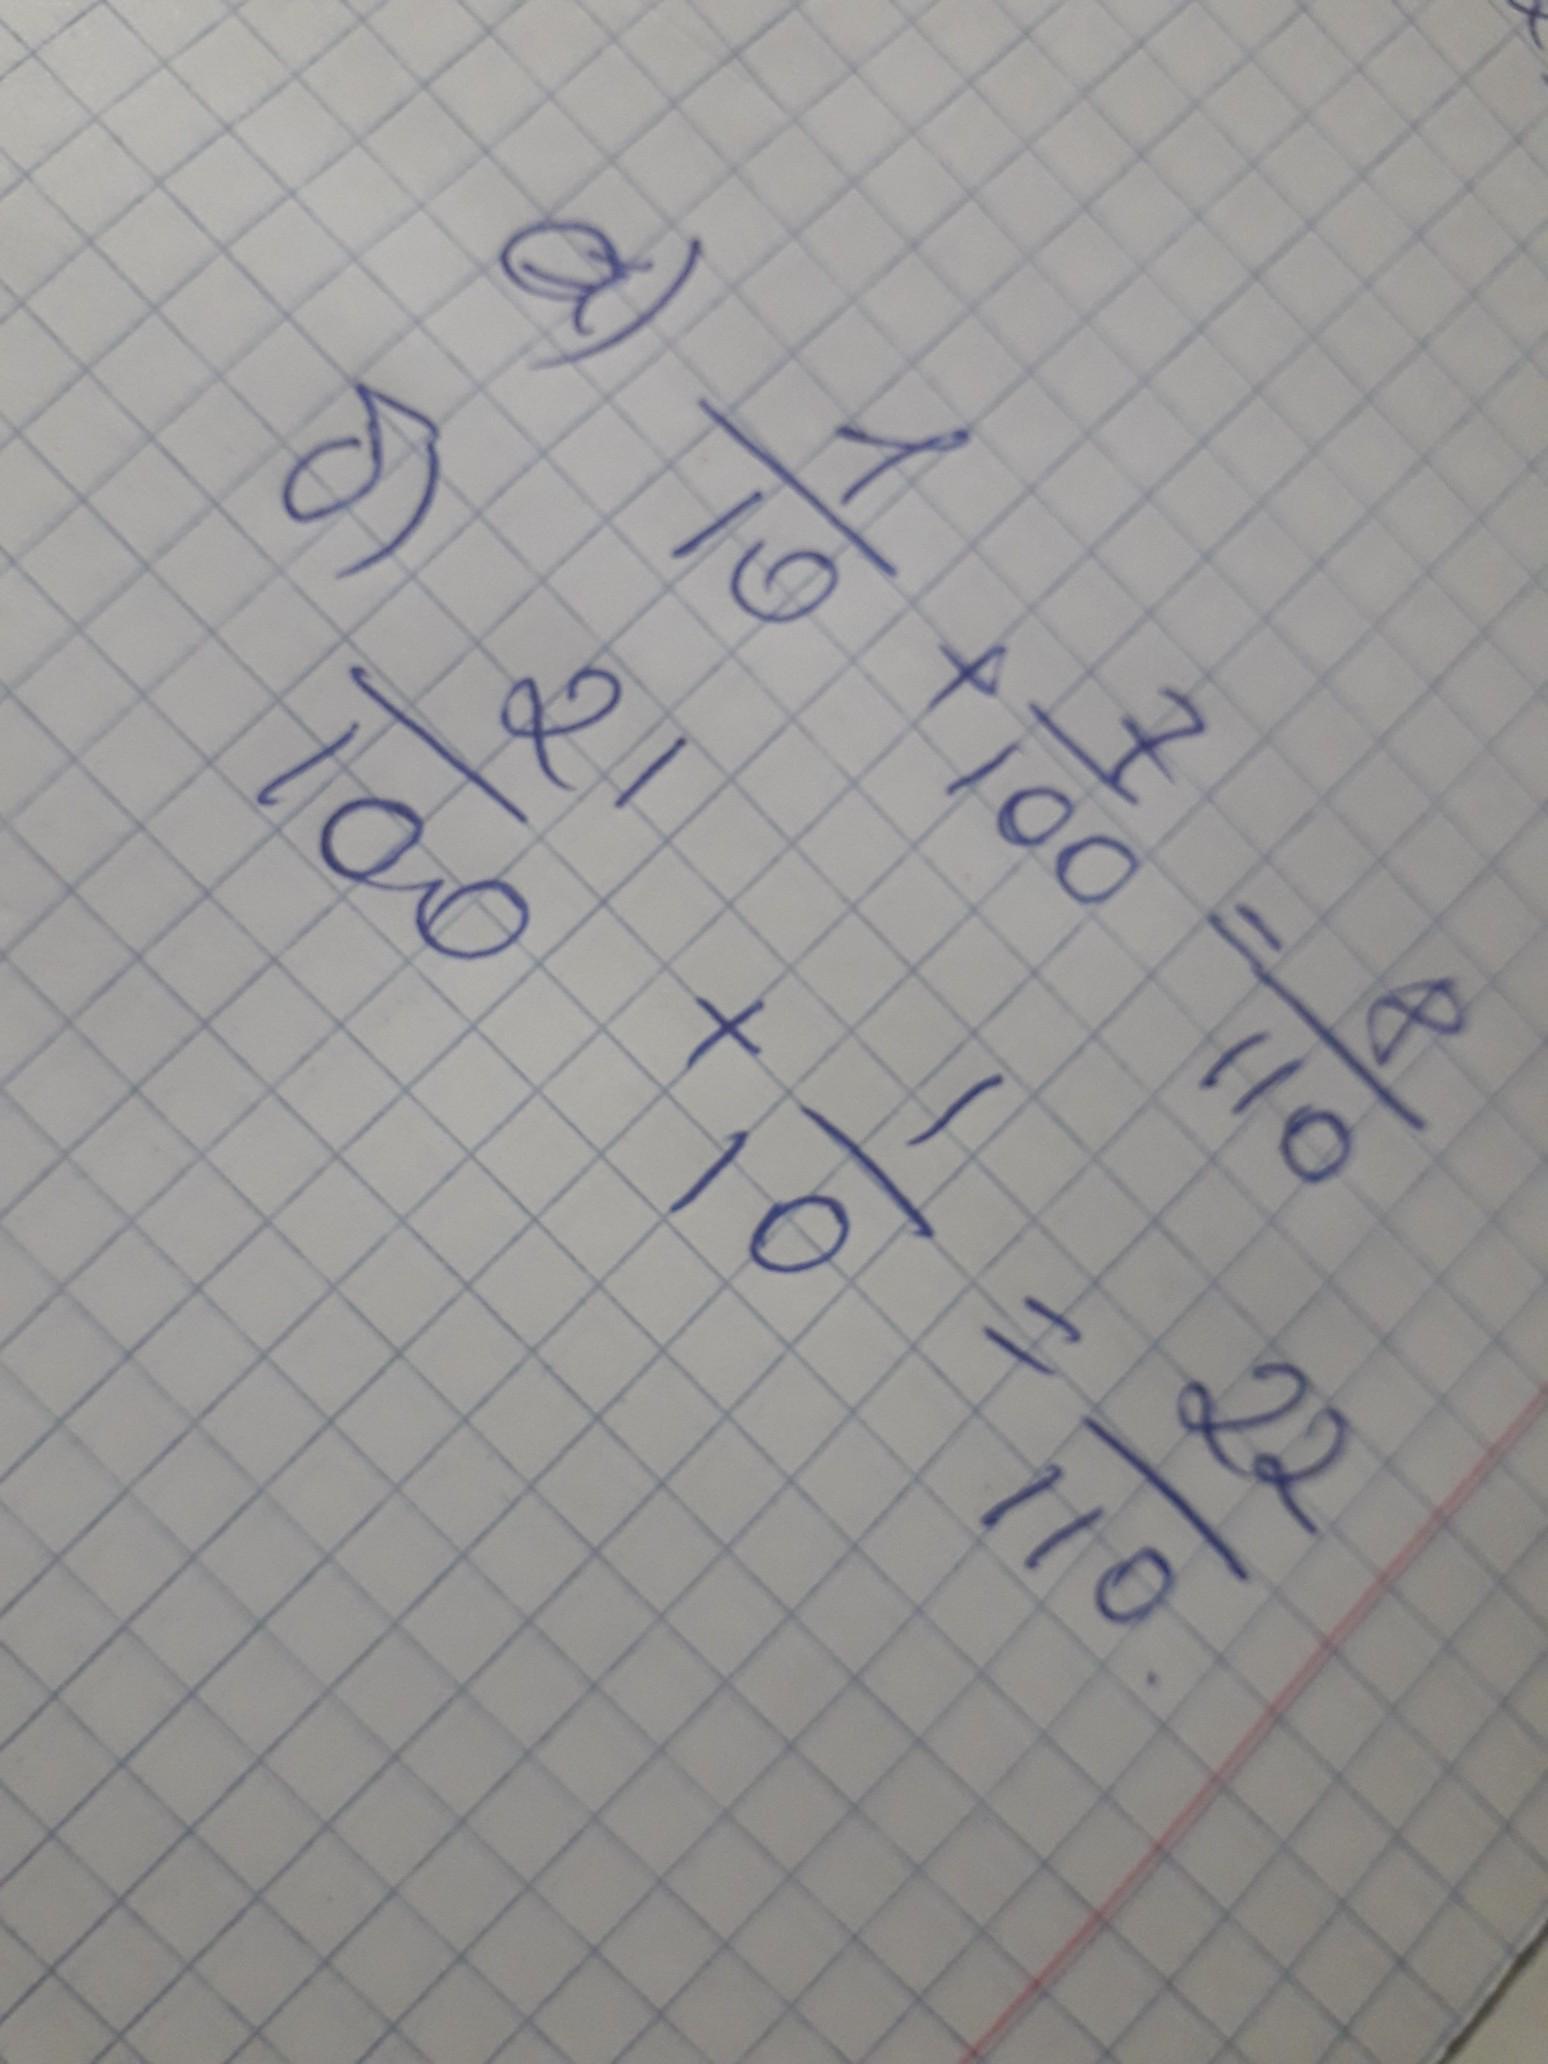 а) 1/10 + 7/100 = 8/110
б) 21/100 + 1/10 = 22/110